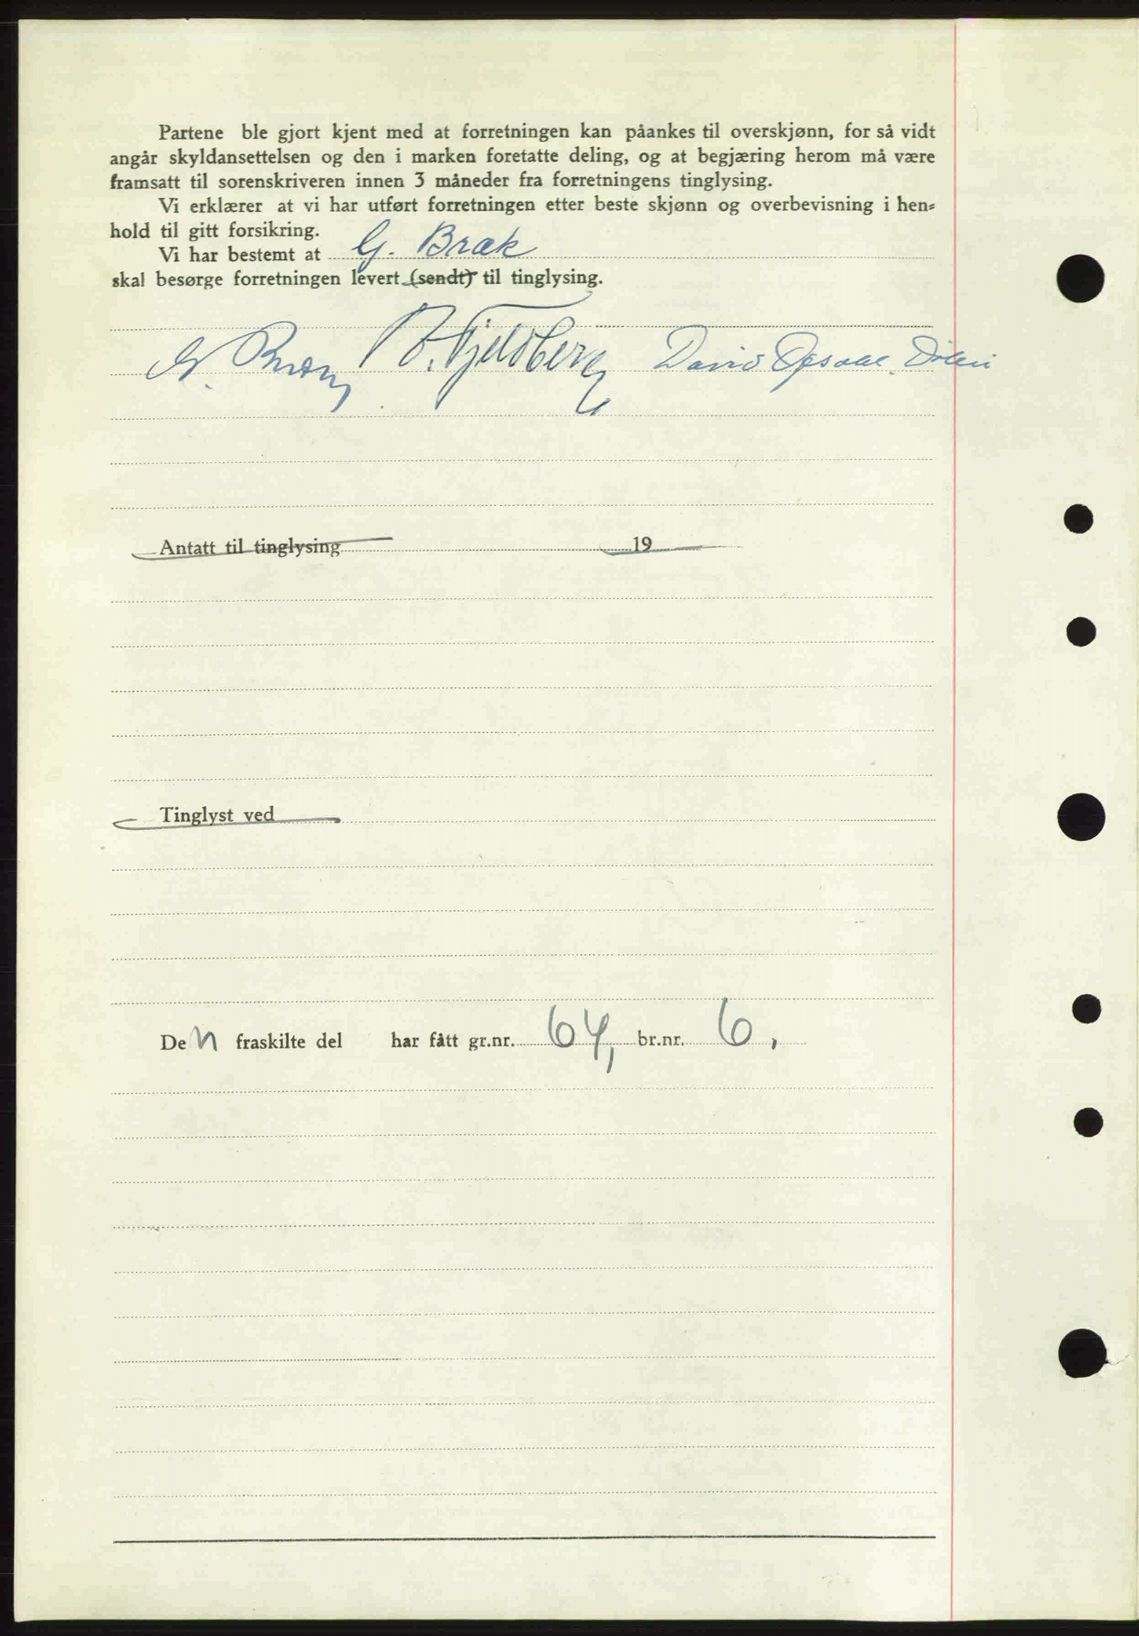 Partene ble gjort kjent med at forretningen kan påankes til overskjønn, for så vidt
angår skyldansettelsen og den i marken foretatte deling, og at begjæring herom må være
framsatt til sorenskriveren innen 3 måneder fra forretningens tinglysing.
Vi erklærer at vi har utført forretningen etter beste skjønn og overbevisning i hen-
hold til gitt forsikring.
Vi har bestemt at G. Bræk
skal besørge forretningen levert (sendt) til tinglysing.
O. Fjeldberg David Opsahl
Antatt til tinglysing 19
Tinglyst ved
Den fraskilte del har fått gr.nr. 64, br.nr. 6,